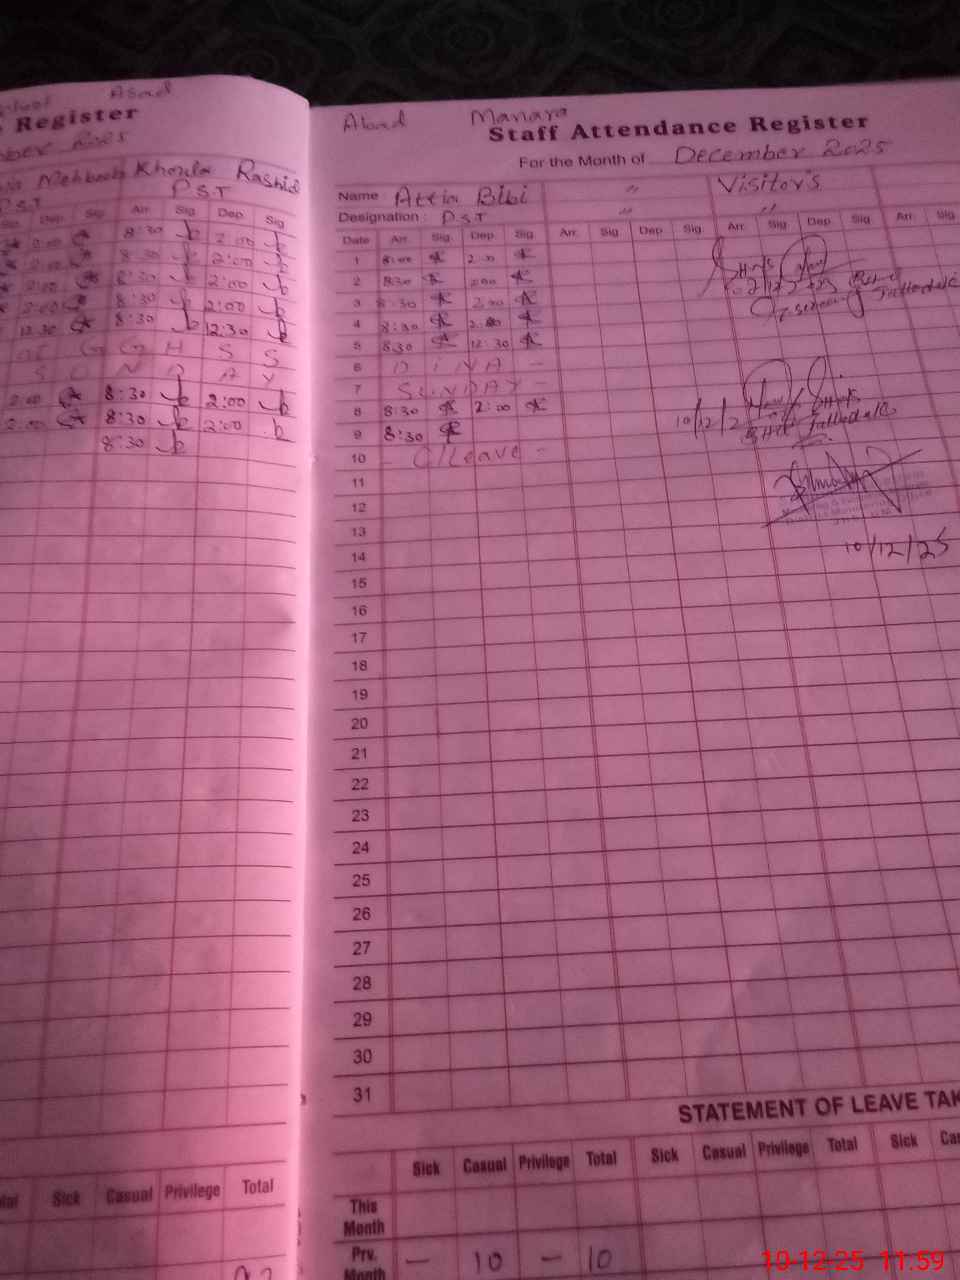 Asad
Register
2025
Mehboob Khonla Rashid
P.S.T
Dep Sig Arr. Sig Dep. Sig
2:00 8:30 2:00
2:00 8:30 2:00
2:00 8:30 2:00
2:00 8:30 2:00
12:30 8:30 12:30
H S S
S U N D A Y
2:00 8:30 2:00
2:00 8:30 2:00
8:30
Sick Casual Privilege Total
Abad Manara
Staff Attendance Register
For the Month of December 2025
Name Attia Bibi " Visitor's
Designation : P.S.T " "
Date Arr. Sig. Dep. Sig. Arr. Sig Dep Sig. Arr. Sig Dep. Sig. Arr. Sig
1 8:00 2:00
2 8:30 2:00
3 8:30 2:00
4 8:30 2:00
5 8:30 12:30
6
7 SUNDAY -
8 8:30 2:00
9 8:30
10 - C/Leave -
11
12
13
14
15
16
17
18
19
20
21
22
23
24
25
26
27
28
29
30
31
10/12/2
10/12/25
STATEMENT OF LEAVE TAK
Sick Casual Privilege Total Sick Casual Privilege Total Sick Cas
This Month
Prv. Month — 10 — 10
10-12-25 11:59